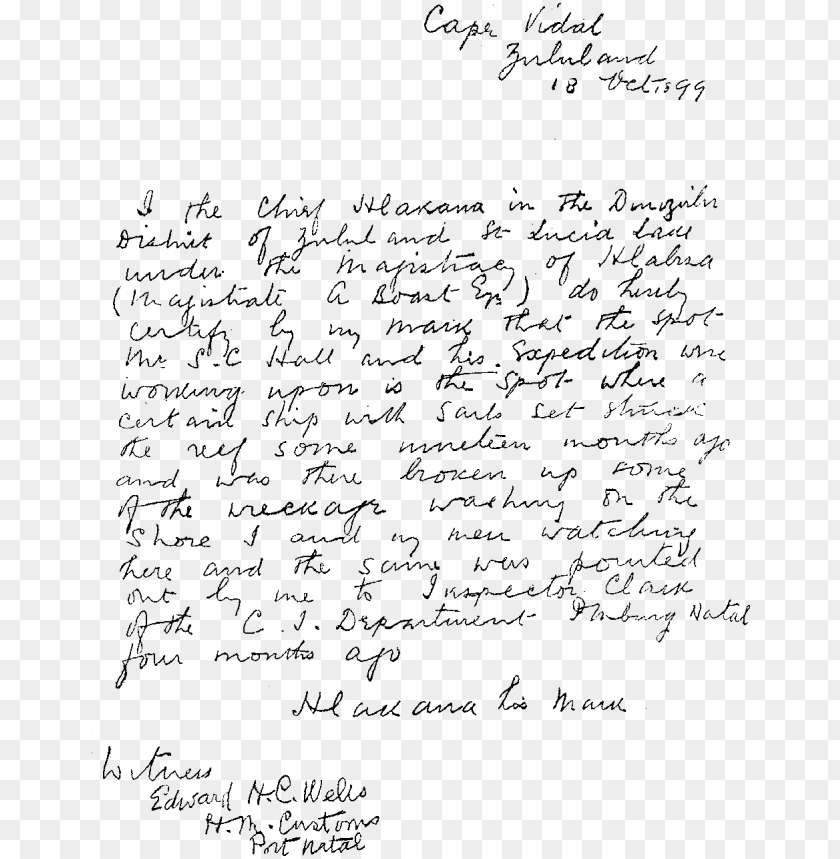 Cape Vidal
Zululand
18 Oct 1899
I the Chief Hlakana in the Dinizulu
District of Zululand St Lucia Lake
under the Magistracy of Hlabisa
(Magistrate A Boast Esq) do hereby
certify by my mark that the spot
Mr S.C Hall and his Expedition were
working upon is the spot where a
certain ship with Sails set struck
the reef some nineteen months ago
and was there broken up some
of the wreckage washing on the
Shore I and my men watching
here and the same was pointed
out by me to Inspector Clark
of the C.I. Department PMburg Natal
four months ago
Hlakana his Mark
Witness
Edward H.C. Wells
H.M. Customs
Port Natal